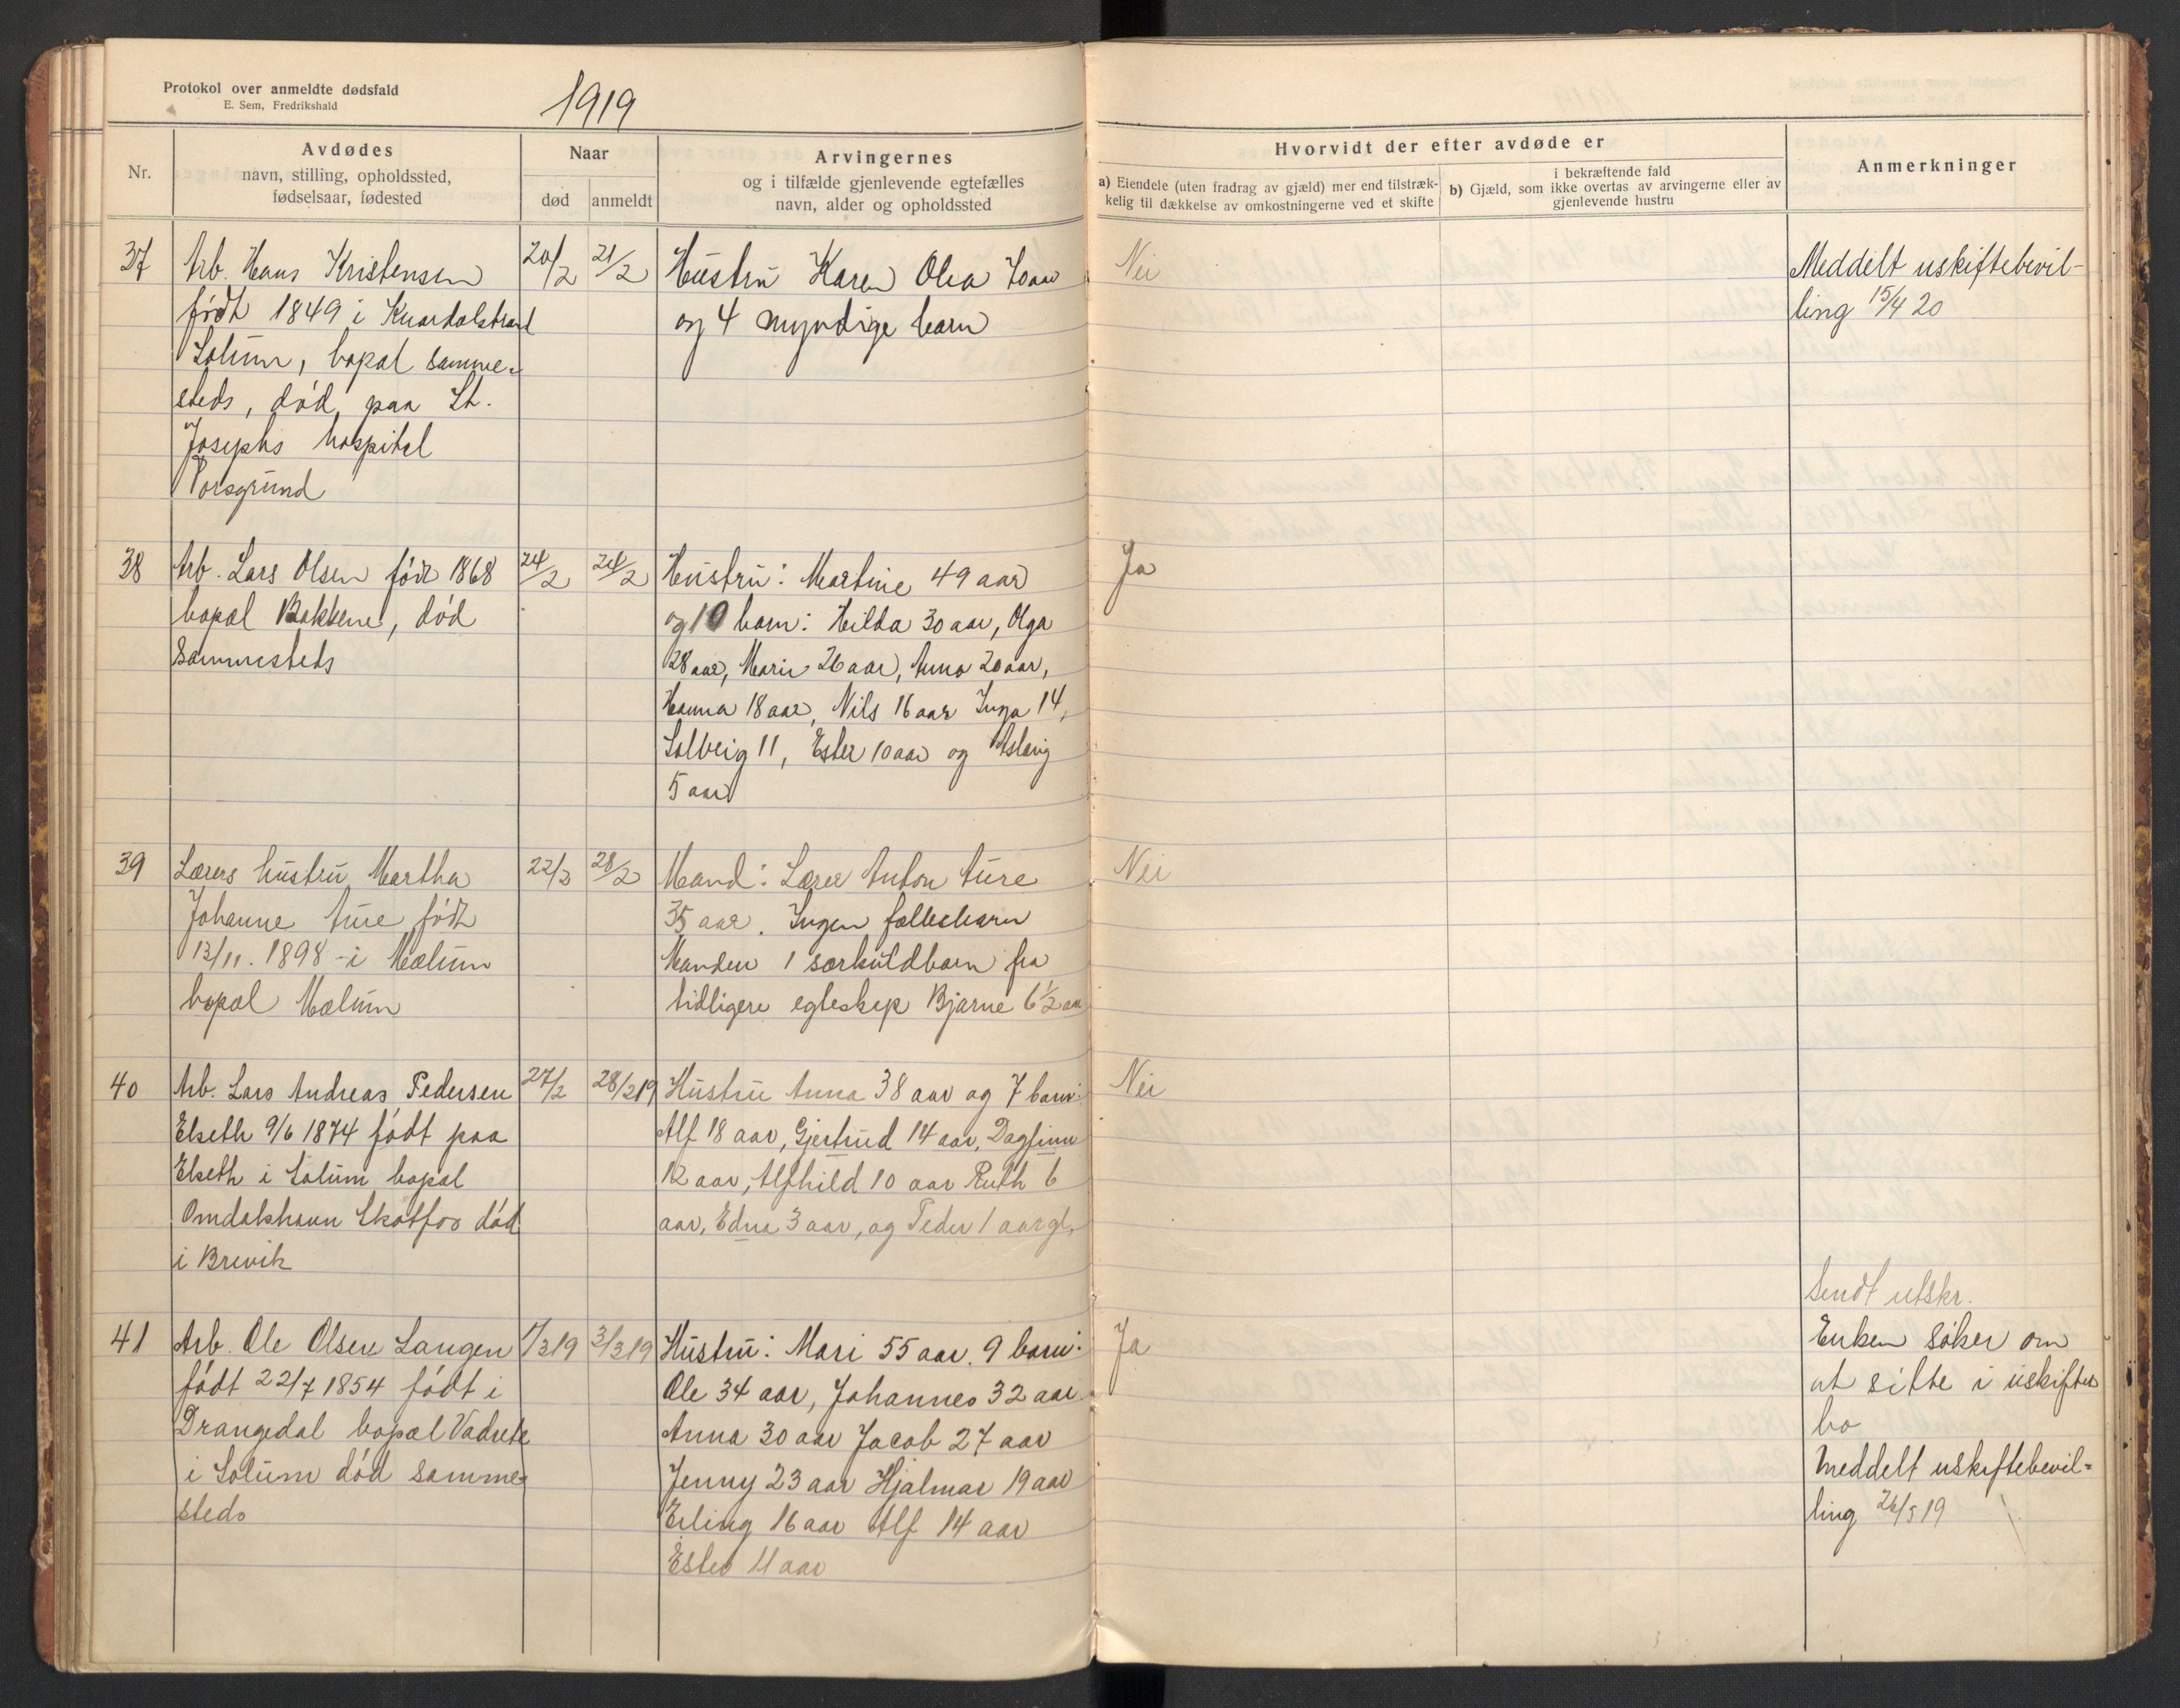 Protokol over anmeldte dødsfald
E. Sem, Fredrikshald
1919
Nr.
Avdødes
navn, stilling, opholdssted,
fødselsaar, fødested
Naar
død
anmeldt
Arvingernes
og i tilfælde gjenlevende egtefælles
navn, alder og opholdssted
Hvorvidt der efter avdøde er
a) Eiendele (uten fradrag av gjæld) mer end tilstræk-
kelig til dækkelse av omkostningerne ved et skifte
i bekræftende fald
b) Gjæld, som ikke overtas av arvingerne eller av
gjenlevende hustru
Anmerkninger
37
Arb. Hans Kristensen
født 1849 i Knardalstrand
Solum, bopal samme-
steds, død paa St.
Josephs hospital
Porsgrund
20/2
21/2
Hustru Karen Olea
og 4 myndige barn
Nei
Meddelt uskiftebevil-
ling 15/4 20
38
Arb. Lars Olsen født 1868
bopal Bakkene, død
Sammesteds
24/2
24/2
Hustru: Martine 49 aar
og 10 barn: Hilda 30 aar, Olga
28 aar, Marie 26 aar, Anna 20 aar,
Hanna 18 aar, Nils 16 aar Inga 14,
Solveig 11, Ester 10 aar og Aslaug
5 aar
Ja
39
Lærers hustru Martha
Johanne Aure født
13/11. 1898 i Mælum
bopal Mælum
22/2
28/2
Mand: Lærer Anton Aure
35 aar. Ingen fællesbarn
Manden 1 særkuldbarn fra
tidligere egteskap Bjarne 6 1/2 aar
Nei
40
Arb. Lars Andreas Pedersen
Elseth 9/6 1874 født paa
Elseth i Solum bopal
Omdalshaun Skotfos død
i Brevik
27/2
28/2 19
Hustru Anna 38 aar og 7 barn:
Alf 18 aar, Gjertrud 14 aar, Dagfinn
12 aar, Alfhild 10 aar Ruth 6
aar, Edna 3 aar, og Peder 1 aar gl.
Nei
41
Arb. Ole Olsen Langen
født 22/7 1854 født i
Drangedal bopal Vadrete
i Solum død samme-
steds
1/3 19
3/3 19
Hustru: Mari 55 aar. 9 barn:
Ole 34 aar, Johannes 32 aar
Anna 30 aar Jacob 27 aar
Jenny 23 aar Hjalmar 19 aar
Erling 16 aar Alf 14 aar
Ester 11 aar
Ja
Sendt utskr.
Enken søker om
at sitte i uskiftet
bo
Meddelt uskiftebevil-
ling 26/5 19